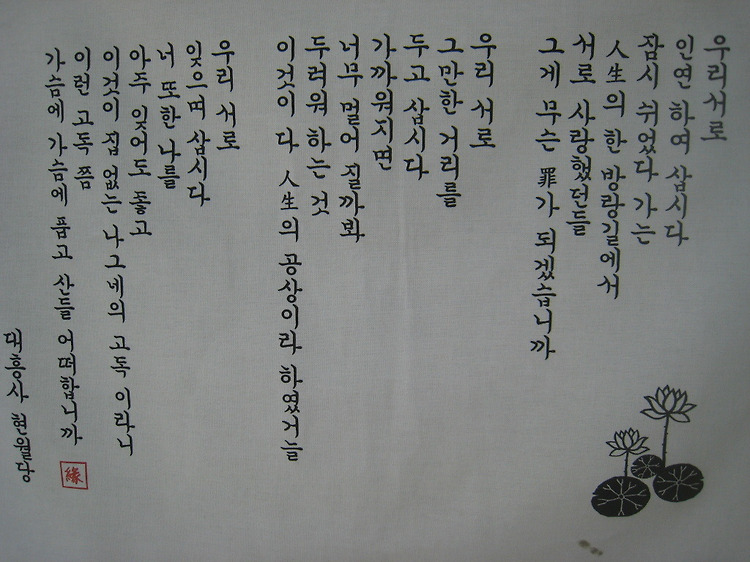 우리서로
인연 하여 삽시다
잠시 쉬었다 가는
人生의 한 방랑길에서
서로 사랑했던들
그게 무슨 罪가 되겠습니까
우리 서로
그만한 거리를
두고 삽시다
가까워지면
너무 멀어 질까봐
두려워 하는 것
이것이 다 人生의 공상이라 하였거늘
우리 서로
잊으며 삽시다
너 또한 나를
아주 잊어도 좋고
이것이 집 없는 나그네의 고독 이라니
이런 고독 쯤
가슴에 가슴에 품고 산들 어떠합니까
緣
대흥사 현월당